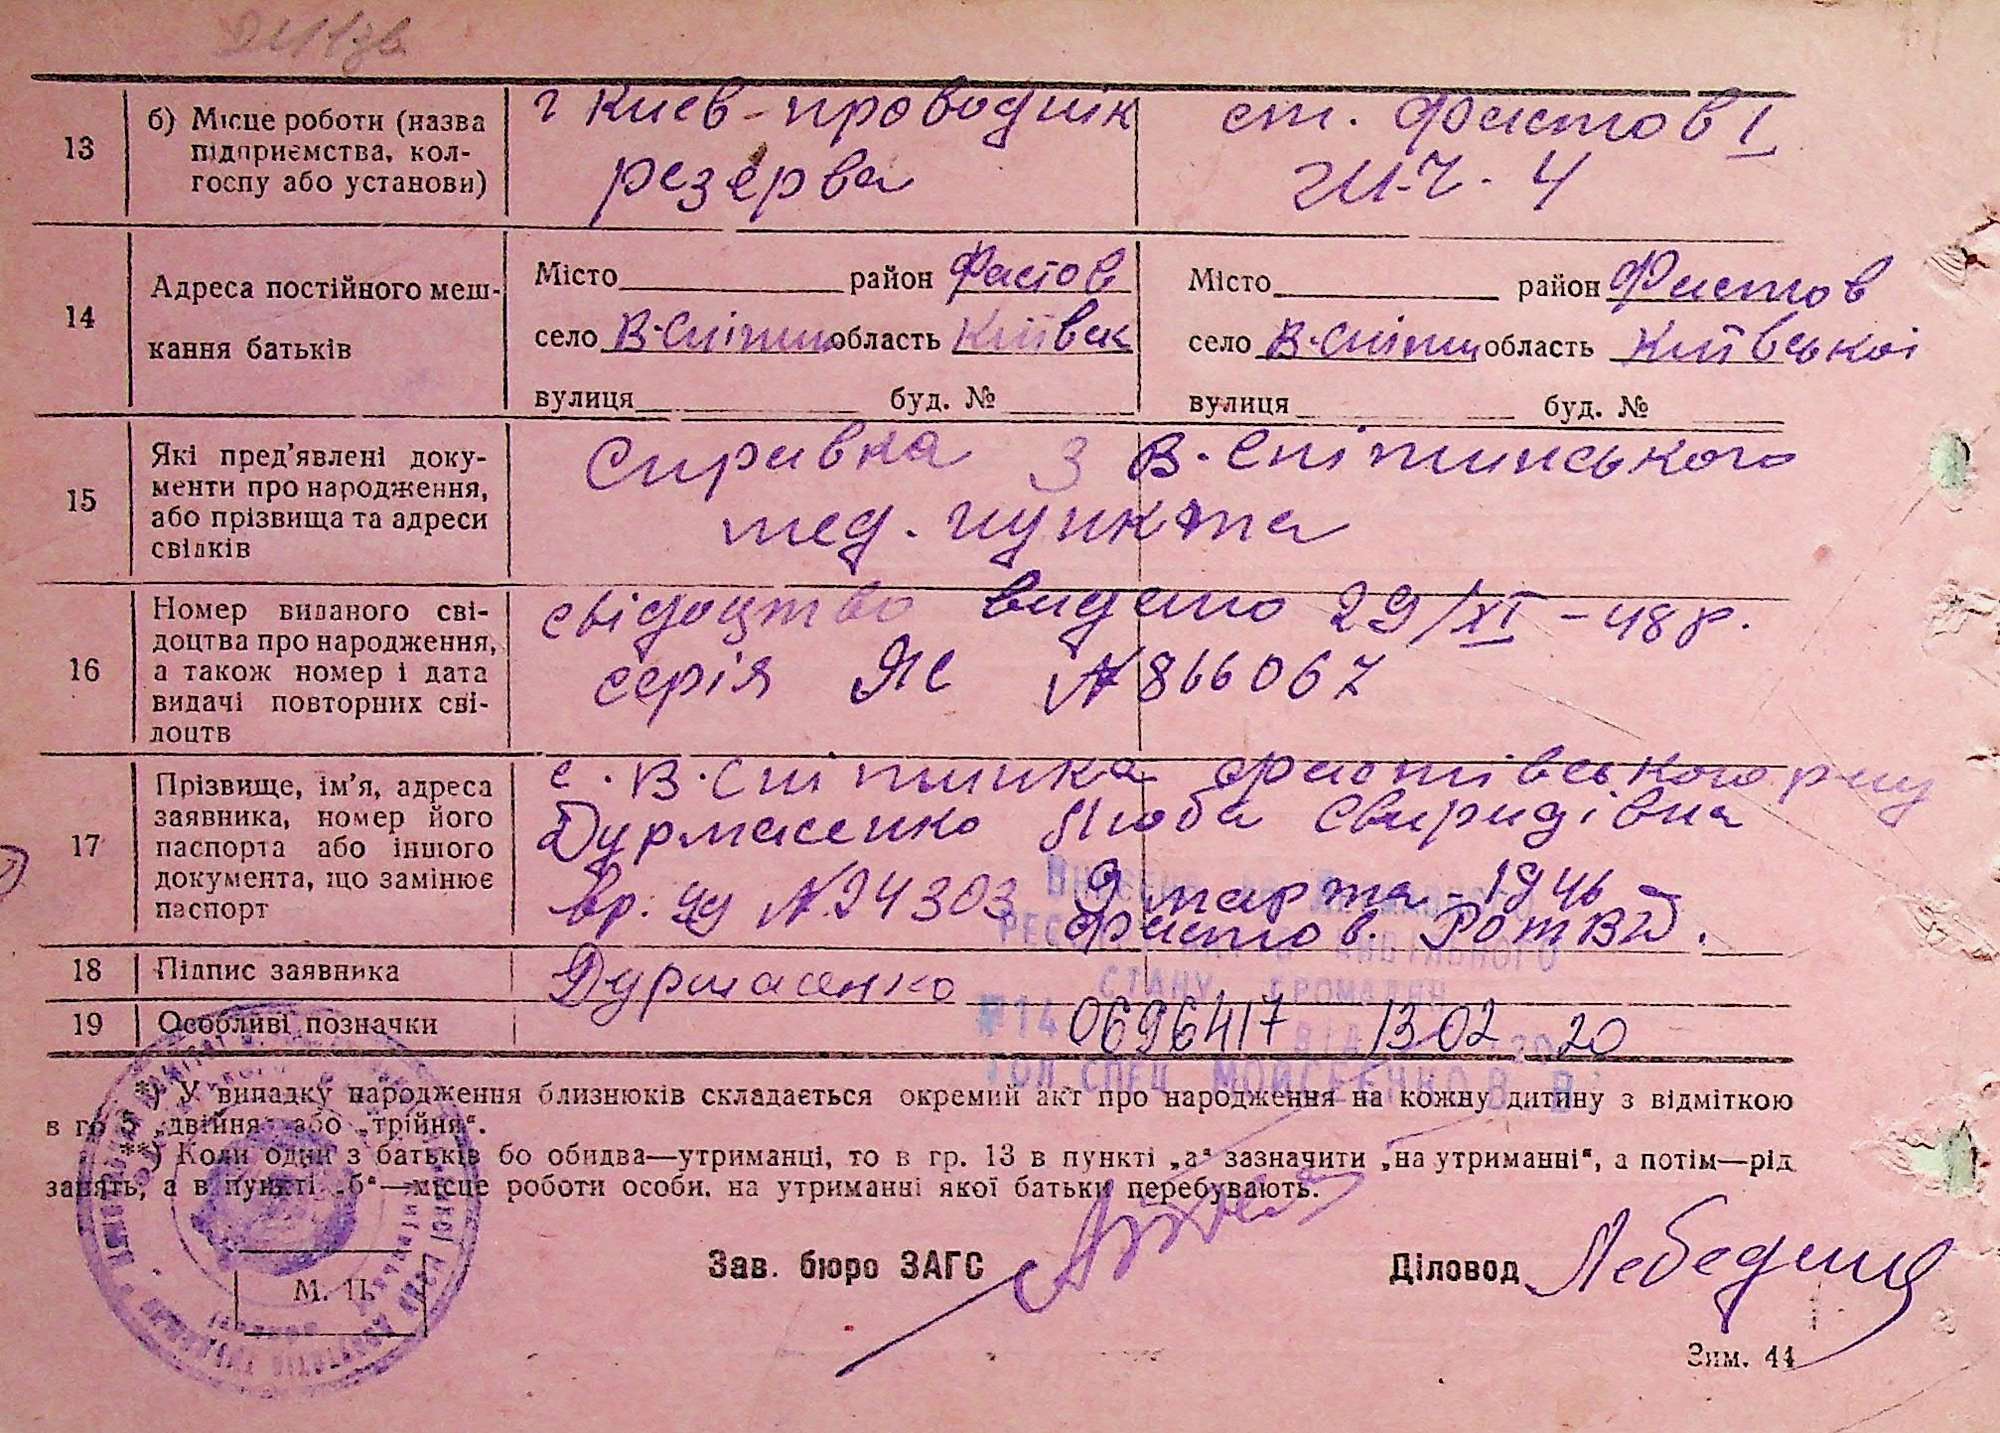 13
б) Місце роботи (назва
підприємства, кол-
госпу або установи)
г Киев-проводнік
резерва
ст. Фастов I
14
Адреса постійного меш-
кання батьків
Місто район Фастов
село В-Снітин область Київськ
вулиця буд. №
Місто район Фастов
село В-Снітин область Київської
вулиця буд. №
15
Які пред'явлені доку-
менти про народження,
або прізвища та адреси
свідків
Справка з В.Снітинського
мед. пункта
16
Номер виданого сві-
доцтва про народження,
а також номер і дата
видачі повторних сві-
доцтв
свідоцтво видано 29/XI-48 р.
серія ЯС № 866067
17
Прізвище, ім'я, адреса
заявника, номер його
паспорта або іншого
документа, що замінює
паспорт
с. В.Снітинка Фастівського р-ну
Дурмасенко Люба Свиридівна
вр. уд № 24303 9 марта 1946
Фастов. РОМВД.
18
Підпис заявника
Дурмасенко
19
Особливі позначки
СТАНУ ГРОМАДЯН
0696417 13 02 20
ГОЛ СПЕЦ МОЙСЕЄНКО В В
*) У випадку народження близнюків складається окремий акт про народження на кожну дитину з відміткою
в гр 5 „двійня" або „трійня".
**) Коли один з батьків бо обидва—утриманці, то в гр. 13 в пункті „а" зазначити „на утриманні", а потім—рід
занять, а в пункті „б"—місце роботи особи. на утриманні якої батьки перебувають.
М. П.
Зав. бюро ЗАГС
Діловод
Зим. 44